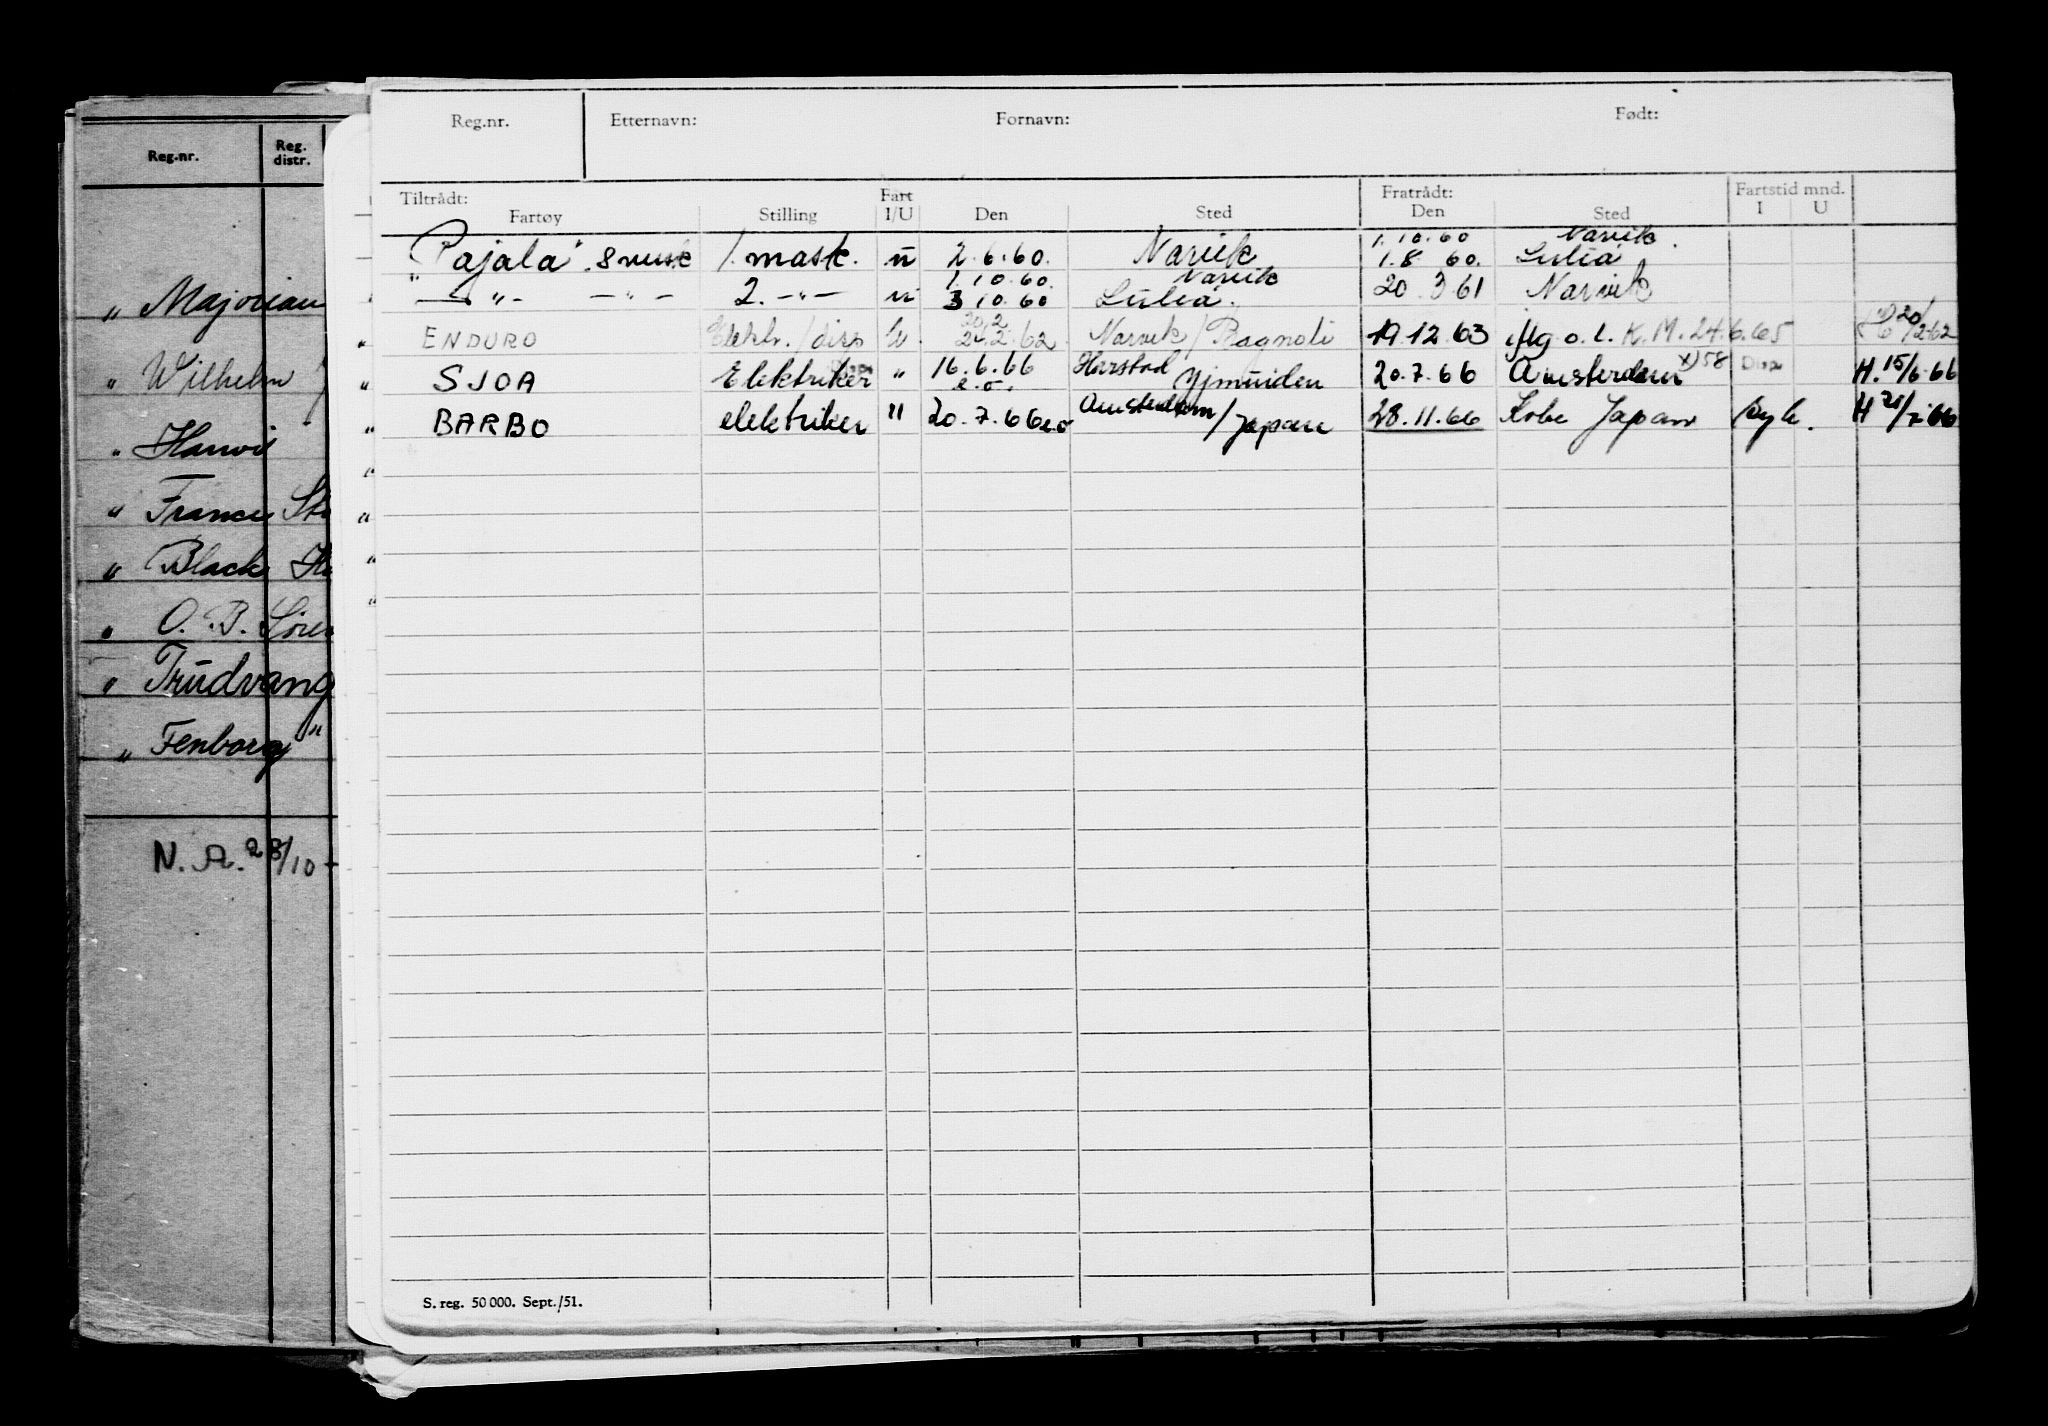 Reg.nr. Reg. distr.
„ Majorian
„ Wilhelm
„ Hanvi
„ Francis
„ Black
„ O. B. Sören
„ Trudvang
„ Fenborg"
N. A. 28/10 -
Reg.nr. Etternavn: Fornavn: Født:
Tiltrådt: Fart Fratrådt: Fartstid mnd.
Fartøy Stilling I/U Den Sted Den Sted I U
1.10.60 Narvik
"Pajala" svensk 1. mask. u 2.6.60. Narvik 1.8 60. Luleå
1.10.60. Narvik
— " - — " — 2. -"- u 3 10.60 Luleå. 20.3.61 Narvik
20 2
ENDURO Elektr./disp u. 24.2.62 Narvik / Bagnoli 19.12.63 iflg o.l. K.M. 24.6.65 20/2.62
„ SJOA Elektriker " 16.6.66 e.o. Harstad Yjmuiden 20.7.66 Amsterdam x) 58 Disp H. 15/6.66
„ BARBO elektriker " 20.7.66 e.o Amsterdam / Japan 28.11.66 Kobe Japan syk. H 21/7.66
S. reg. 50 000. Sept./51.